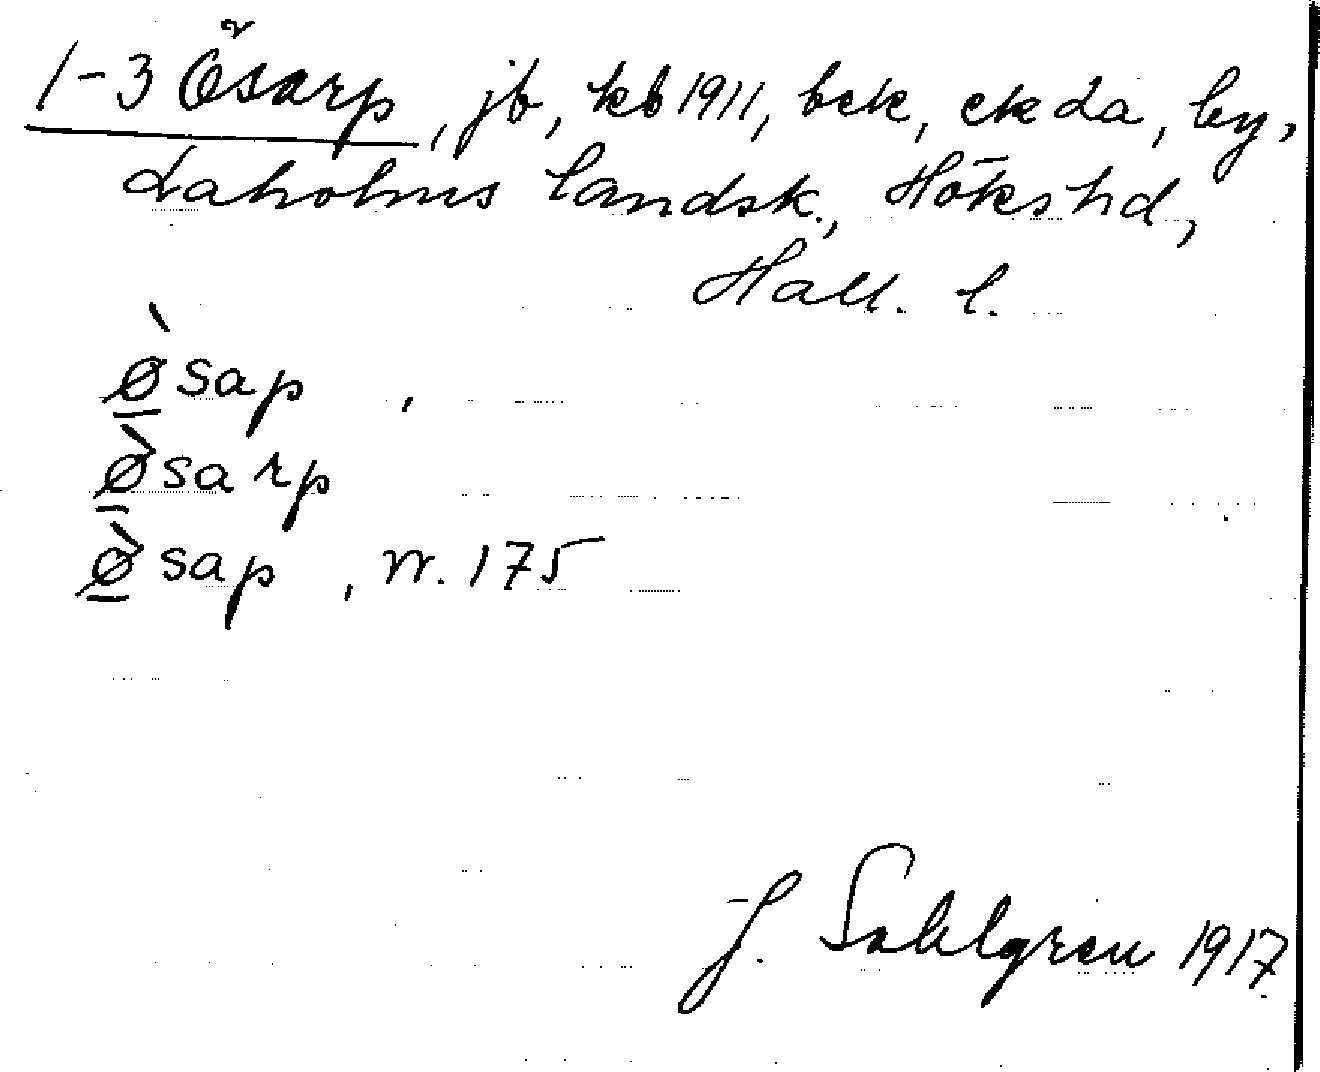 1-3 Ösarp, jb, kb 1911, bek, ekda, by,
Laholms landsk., Höks hd,
Hall. l.
ø̱̀sap ,
ø̱̀sarp
ø̱̀sap , n. 175
J. Sahlgren 1917